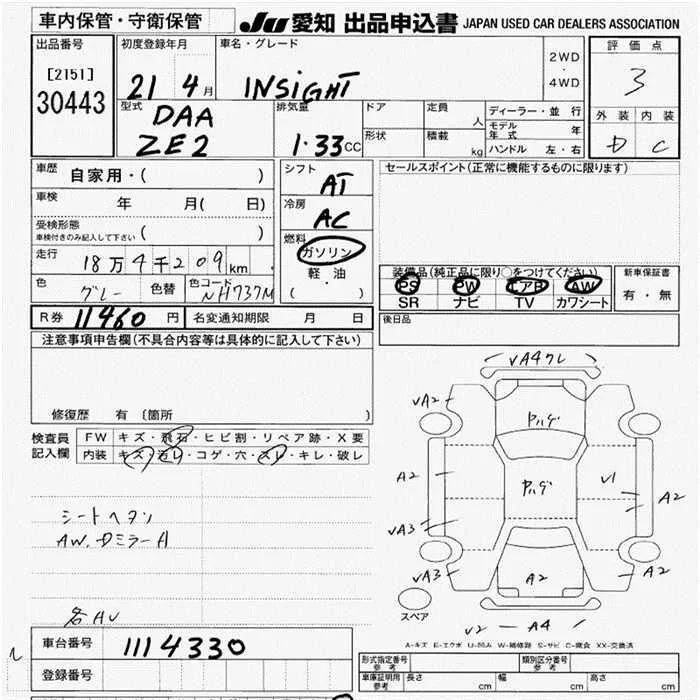 車内保管・守衛保管
JU 愛知 出品申込書 JAPAN USED CAR DEALERS ASSOCIATION
出品番号
[2151]
30443
初度登録年月
21 4月
車名・グレード
INSIGHT
2WD
・
4WD
評価点
3
外装 内装
D C
型式
DAA
ZE2
排気量
1.33CC
ドア
形状
定員 人
積載 kg
ディーラー・並行
モデル年式 年
ハンドル 左・右
車歴
自家用・( )
車検 年 月( 日)
受検形態
車検付きのみ記入して下さい ( )
走行
18万4千209km
色
グレー
色替
色コード
NH737M
シフト
AT
冷房
AC
燃料
ガソリン
軽・油
( )
セールスポイント(正常に機能するものに限ります)
装備品(純正品に限り○をつけてください)
PS PW エアB AW
SR ナビ TV カワシート
新車保証書
有・無
R券 11460円 名変通知期限 月 日
後日品
注意事項申告欄(不具合内容等は具体的に記入して下さい)
修復歴 有 〔箇所 〕
検査員
記入欄
FW キズ・飛石・ヒビ割・リペア跡・X要
内装 キズ・汚レ・コゲ・穴・スレ・キレ・破レ
シートヘタリ
AW.DミラーA
各AU
VA4クレ
VA2
A2
VA3
VA3
ハゲ
ハゲ
V1
A2
A2
A2
V2
A4
スペア
A-キズ E-エクボ U-凹み W-補修跡 S-サビ C-腐食 XX-交換済
車台番号
1114330
登録番号
形式指定番号
参考
類別区分番号
参考
車庫証明用
参考
長さ cm 幅 cm 高さ cm